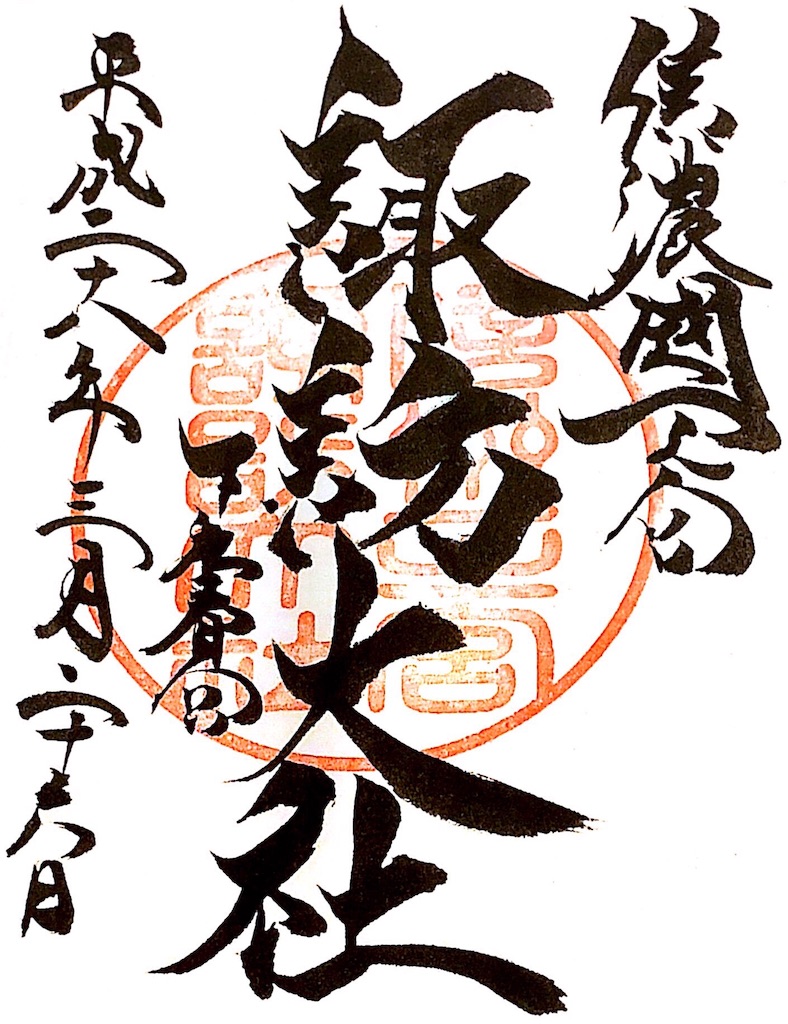 信濃國一宮
諏訪大社
下春宮
平成二十八年三月二十六日